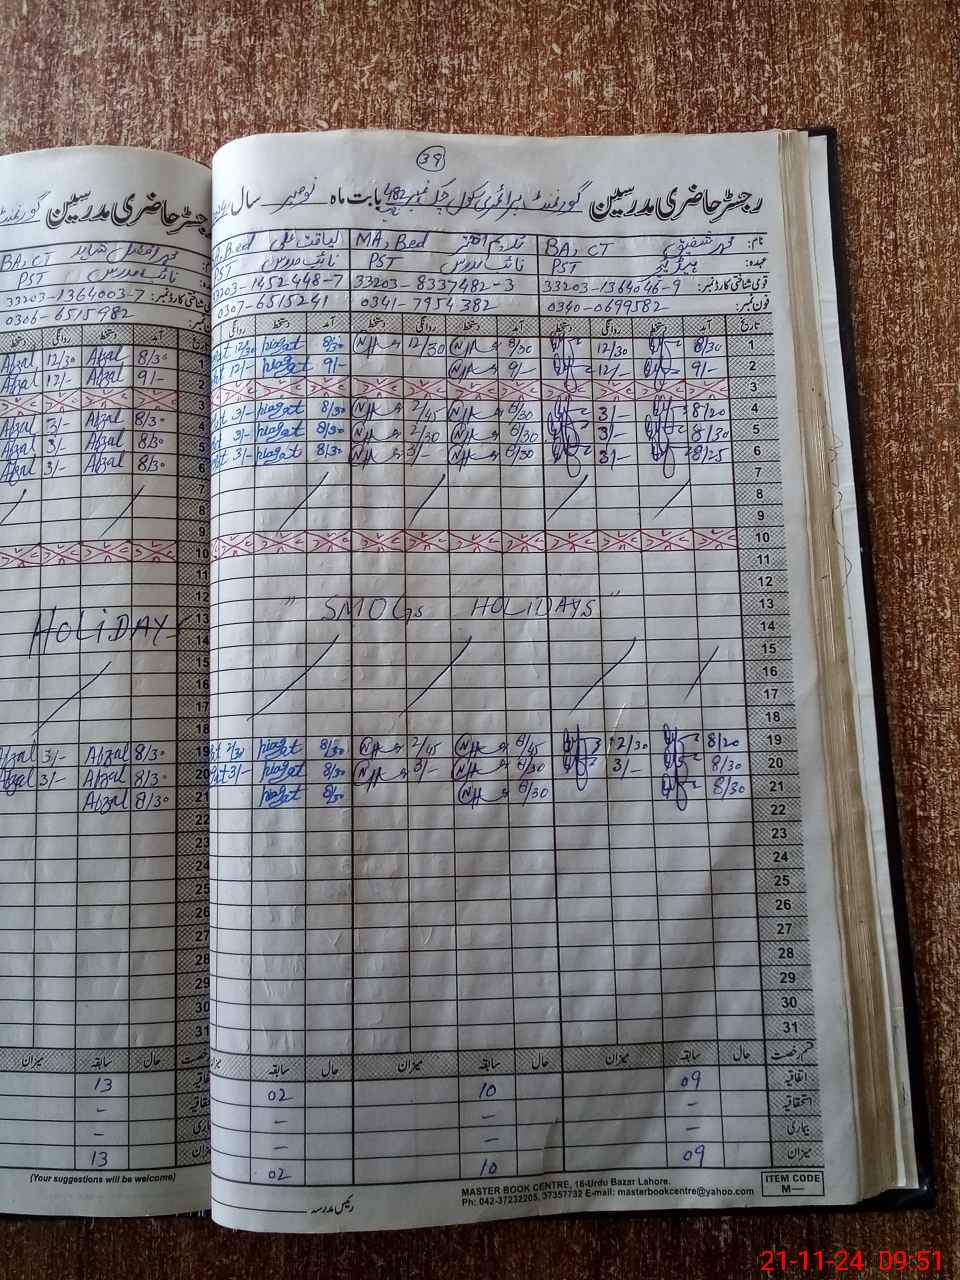 39
رجسٹر حاضری مدرسین گورنمنٹ پرائمری سکول چک نمبر 482 بابت ماہ نومبر سال
نام: محمد شفیق BA, CT MA, Bed لیاقت علی Bed
عہدہ: ہیڈ ٹیچر PST نائب مدرس PST نائب مدرس PST
قومی شناختی کارڈ نمبر: 33203-1364046-9 33203-8337482-3 33203-1452448-7
فون نمبر: 0340-0699582 0341-7954382 0307-6515241
تاریخ آمد دستخط روانگی دستخط آمد دستخط روانگی دستخط آمد دستخط روانگی
1 8/30 12/30 8/30 12/30 8/30 12/30
2 9/- 12/- 9/- 9/- 12/-
3
4 8/20 3/- 8/30 2/45 8/30 3/-
5 8/30 3/- 8/30 2/30 8/30 3/-
6 8/25 3/- 8/30 3/- 8/30 3/-
7
8
9
10
11
12
13 " SMOGs HOLIDAYS "
14
15
16
17
18
19 8/20 2/30 8/45 2/45 8/30 2/30
20 8/30 3/- 8/30 3/- 8/30 3/-
21 8/30 8/30 8/30
22
23
24
25
26
27
28
29
30
31
قسم رخصت حال سابقہ میزان حال سابقہ میزان حال سابقہ میزان
اتفاقیہ 09 10 02
استحقاقیہ - - -
بیماری - - -
میزان 09 10 02
رئیس مدرسہ
MASTER BOOK CENTRE, 16-Urdu Bazar Lahore.
Ph: 042-37232205, 37357732 E-mail: masterbookcentre@yahoo.com
ITEM CODE
M—
رجسٹر حاضری مدرسین گورنمنٹ
محمد افضل شاہد BA, CT
نائب مدرس PST
قومی شناختی کارڈ نمبر: 33203-1364003-7
0306-6515982
تاریخ آمد دستخط روانگی دستخط
1 8/30 Afzal 12/30 Afzal
2 9/- Afzal 12/- Afzal
3
4 8/30 Afzal 3/- Afzal
5 8/30 Afzal 3/- Afzal
6 8/30 Afzal 3/- Afzal
7
8
9
10
11
12
13 HOLiDAY
14
15
16
17
18
19 8/30 Afzal 3/- Afzal
20 8/30 Afzal 3/- Afzal
21 8/30 Afzal
22
23
24
25
26
27
28
29
30
31
رخصت حال سابقہ میزان
اتفاقیہ 13
استحقاقیہ -
بیماری -
میزان 13
(Your suggestions will be welcome)
21-11-24 09:51